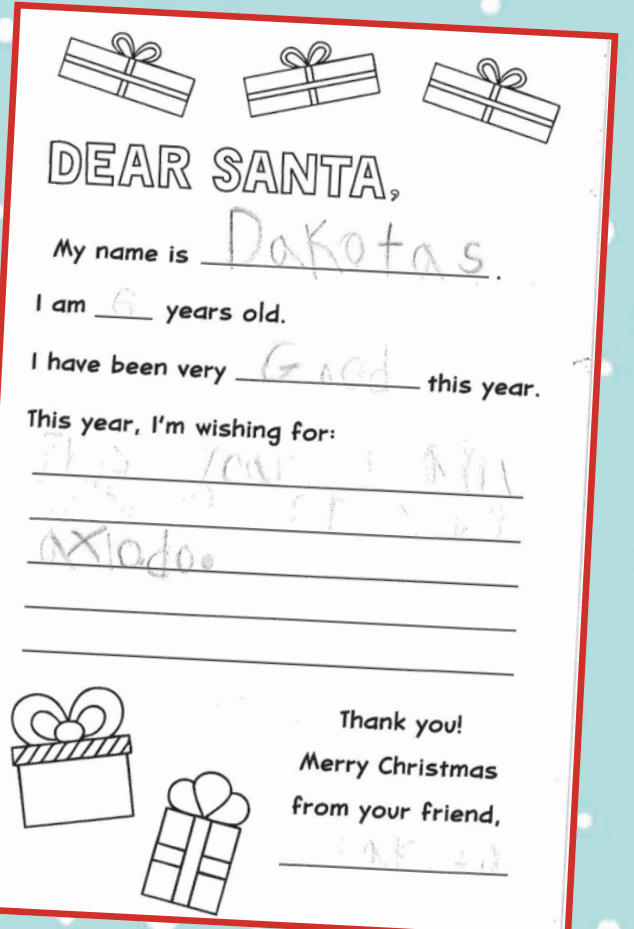 DEAR SANTA,
My name is Dakotas.
I am 6 years old.
I have been very Good this year.
This year, I'm wishing for:
This year I
axlodo.
Thank you!
Merry Christmas
from your friend,